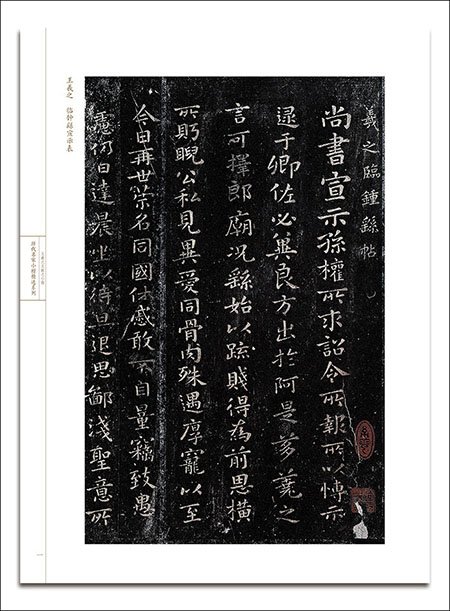 王羲之 临钟繇宣示表
羲之臨鍾繇帖
尚書宣示孫權所求詔令所報所以博示
逮于卿佐必冀良方出於阿是芻蕘之
言可擇郎廟況繇始以疏賤得為前恩橫
所眄公私見異愛同骨肉殊遇厚寵以至
今日再世榮名同國休慼敢不自量竊致愚
慮仍日達晨坐以待旦退思鄙淺聖意所
历代名家小楷精选系列